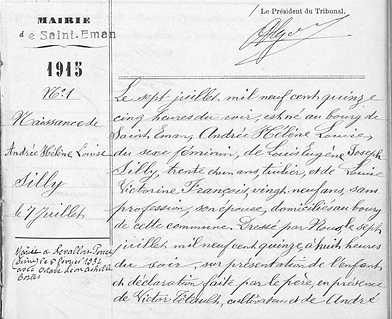 Le Président du Tribunal.
MAIRIE
de Saint-Eman
1915
N°1
Naissance de
Andrée Hélène Louise
Silly
le 7 Juillet
Le sept juillet mil neuf cent quinze
cinq heures du soir, est né au bourg de
Saint Eman, Andrée Hélène Louise
du sexe féminin, de Louis Eugène Joseph
Silly, trente cinq ans, tuilier, et de Louise
Victorine François, vingt neuf ans, sans
profession, son épouse, domiciliés au bourg
de cette commune. Dressé par Nous le sept
juillet mil neuf cent quinze, à huit heures
du soir, sur présentation de l'enfant
et déclaration faite par le père, en présence
de Victor cultivateur et de André
Mariée à
le 8 février 1937
avec Octave Léon